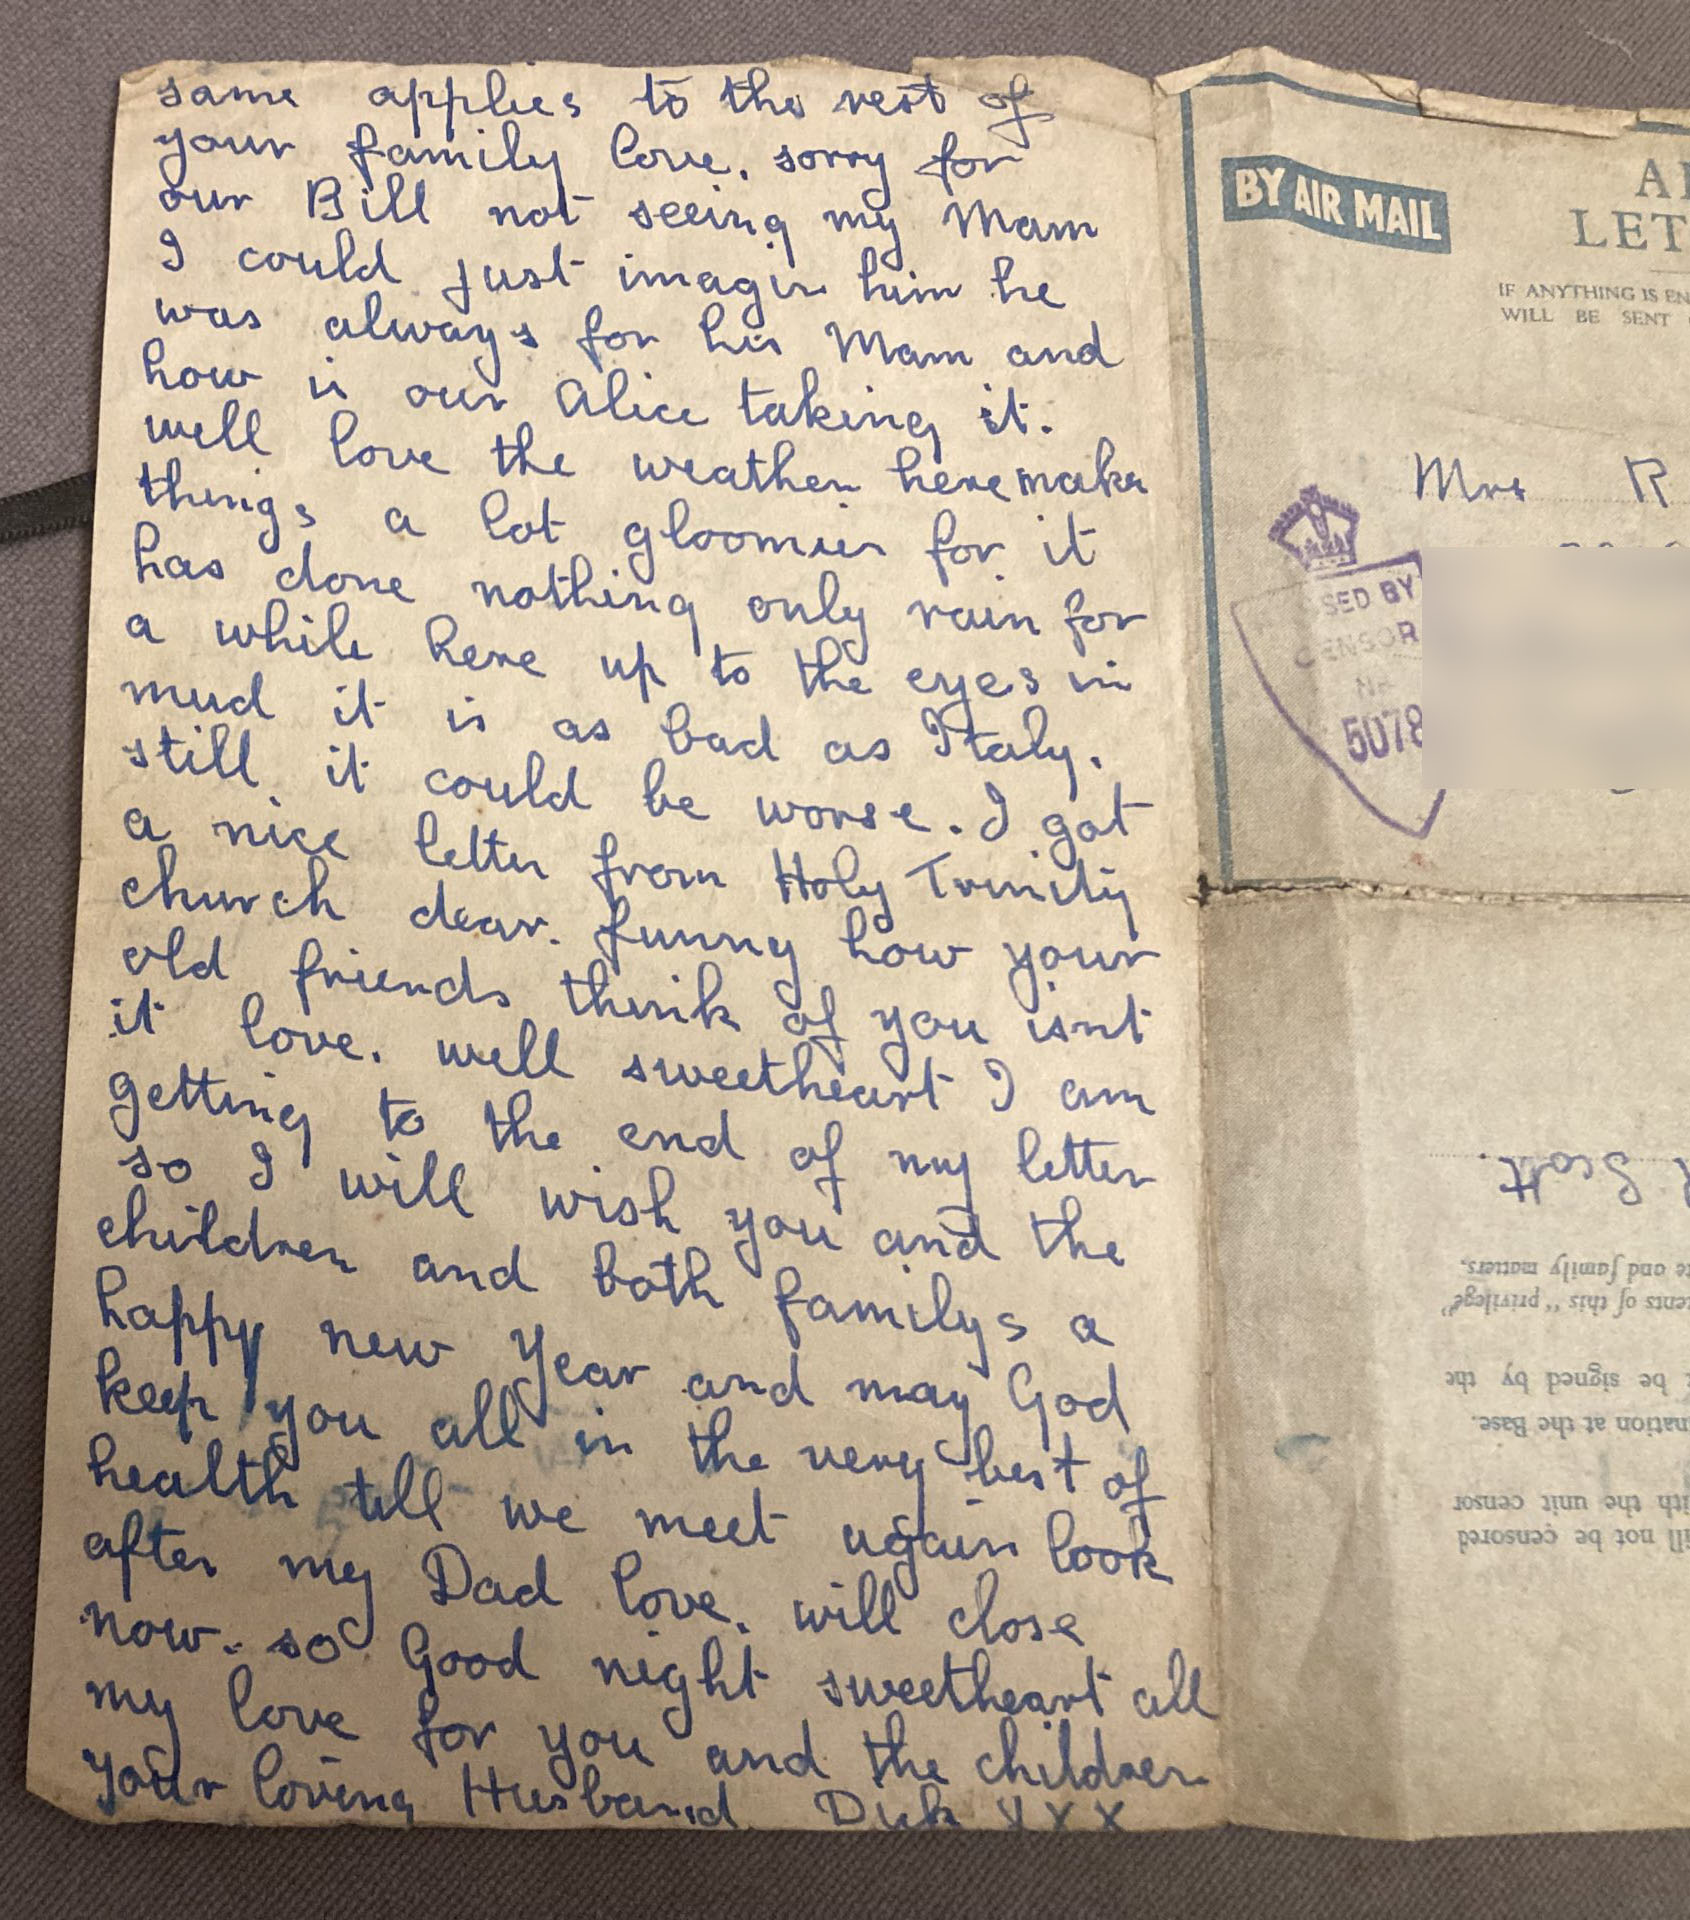 same applies to the rest of
your family love. sorry for
our Bill not seeing my Mam
I could just imagin him he
was always for his Mam and
how is our Alice taking it.
well love the weather here make
things a lot gloomier for it
has done nothing only rain for
a while here up to the eyes in
mud it is as bad as Italy.
still it could be worse. I got
a nice letter from Holy Trinity
church dear. funny how your
old friends think of you isnt
it love. well sweetheart I am
getting to the end of my letter
so I will wish you and the
children and both familys a
happy new year and may God
keep you all in the very best of
health till we meet again look
after my Dad love. will close
now. so Good night sweetheart all
my love for you and the children
Your loving Husband Dick XXX
BY AIR MAIL
LET
IF ANYTHING IS EN
WILL BE SENT
Mrs R
SED BY
CENSOR
5078
Scott.
te and family matters.
tents of this "privilege"
be signed by the
nation at the Base.
ith the unit censor
ill not be censored